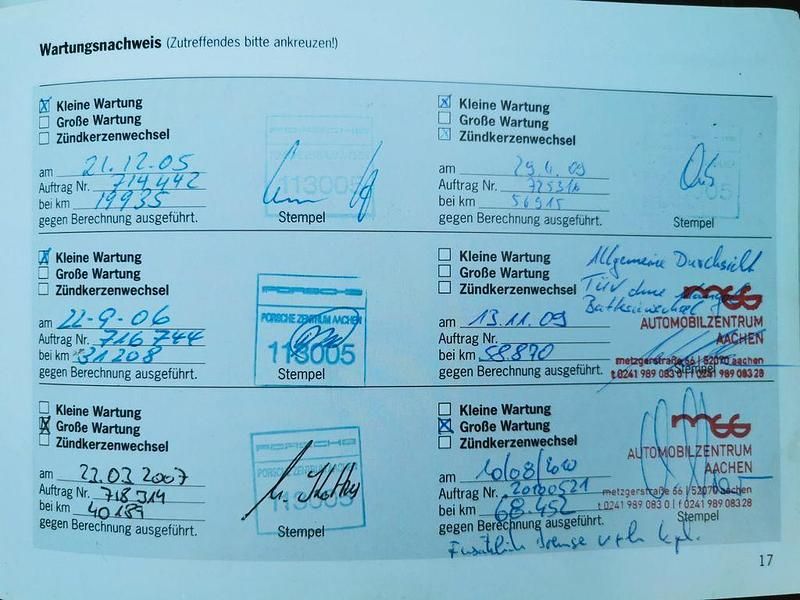 Wartungsnachweis (Zutreffendes bitte ankreuzen!)
Kleine Wartung
Große Wartung
Zündkerzenwechsel
am 21.12.05
Auftrag Nr. 714442
bei km 19935
gegen Berechnung ausgeführt.
113005
Stempel
Kleine Wartung
Große Wartung
Zündkerzenwechsel
am 29.4.09
Auftrag Nr. 725316
bei km 56915
gegen Berechnung ausgeführt.
Stempel
Kleine Wartung
Große Wartung
Zündkerzenwechsel
am 22-9-06
Auftrag Nr. 716744
bei km 31208
gegen Berechnung ausgeführt.
PORSCHE
PORSCHE ZENTRUM AACHEN
113005
Stempel
Kleine Wartung
Große Wartung
Zündkerzenwechsel
Allgemeine Durchsicht
TÜV ohne
Batteriewechsel
am 13.11.09
Auftrag Nr.
bei km 58.870
gegen Berechnung ausgeführt.
mcg
AUTOMOBILZENTRUM
AACHEN
metzgerstraße 56 | 52070 aachen
t 0241 989 083 0 | f 0241 989 083 28
Stempel
Kleine Wartung
Große Wartung
Zündkerzenwechsel
am 22.03 2007
Auftrag Nr. 718314
bei km 40189
gegen Berechnung ausgeführt.
PORSCHE
PORSCHE ZENTRUM AACHEN
113005
Stempel
Kleine Wartung
Große Wartung
Zündkerzenwechsel
am 10/08/2010
Auftrag Nr. 20100521
bei km 68.452
gegen Berechnung ausgeführt.
mcg
AUTOMOBILZENTRUM
AACHEN
metzgerstraße 56 | 52070 aachen
t 0241 989 083 0 | f 0241 989 083 28
Stempel
Zusätzlich Bremse v+h kpl.
17